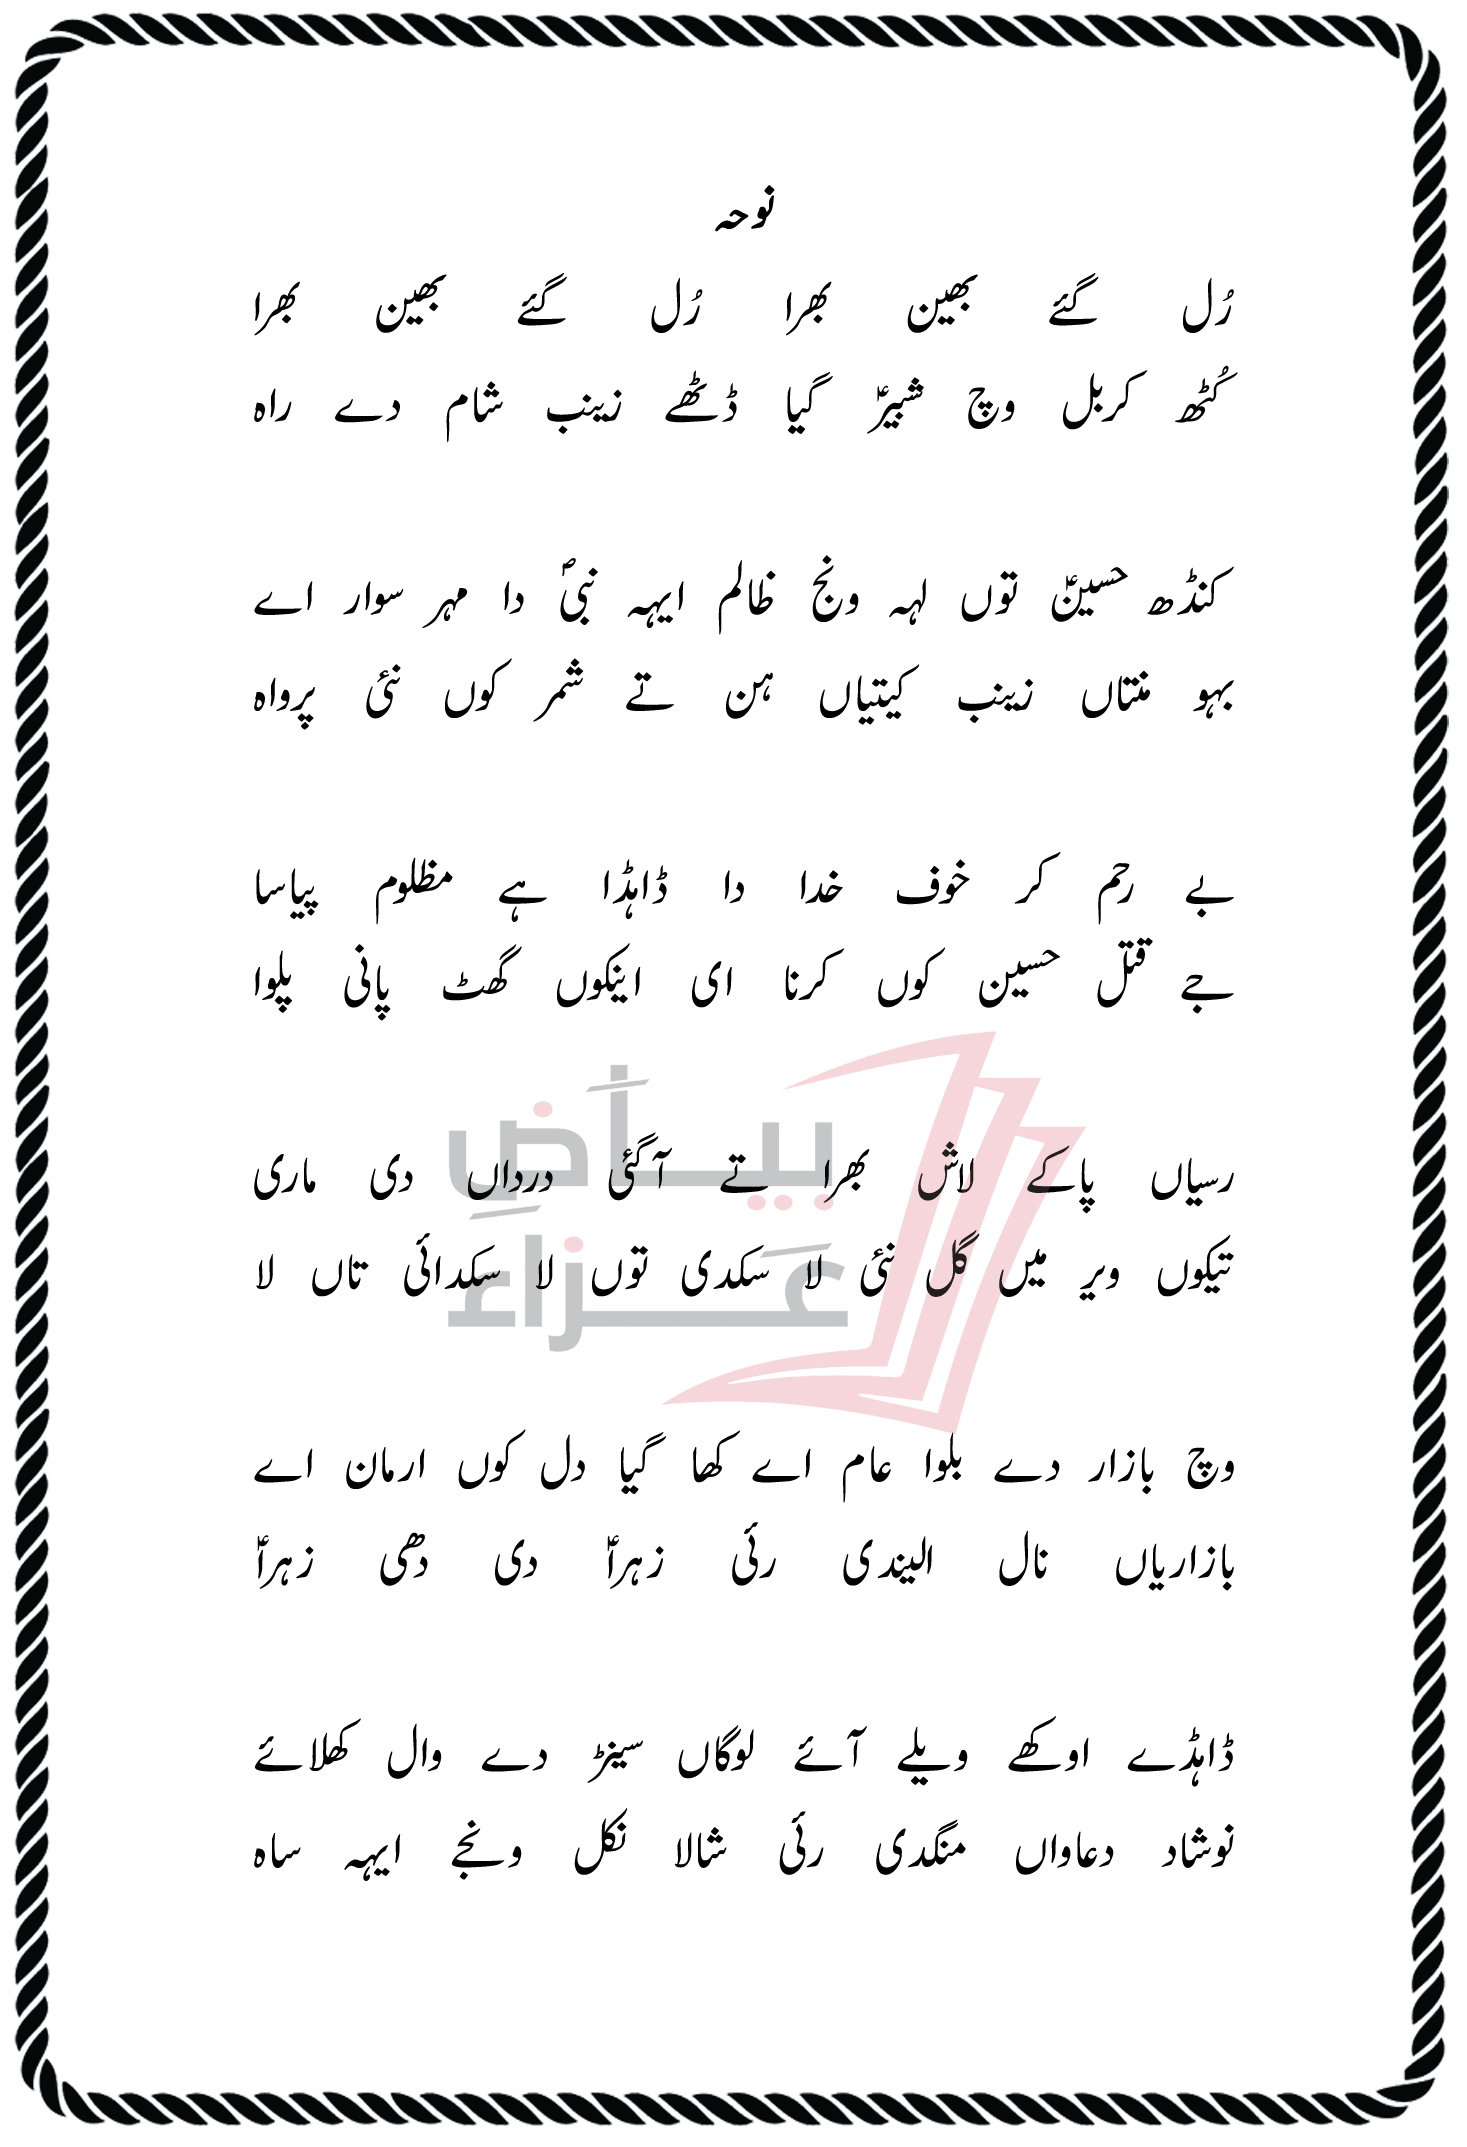 نوحہ
رُل گئے بھین بھرا رُل گئے بھین بھرا
کُٹھ کربل وچ شبیرؑ گیا ڈٹھے زینب شام دے راہ
کنڈھ حسینؑ توں لہہ ونج ظالم ایہہ نبیؐ دا مہر سوار اے
بہو منتاں زینب کیتیاں ہن تے شمر کوں نئی پرواہ
بے رحم کر خوف خدا دا ڈاہڈا ہے مظلوم پیاسا
جے قتل حسین کوں کرنا ای اینکوں گھٹ پانی پلوا
رسیاں پاکے لاش بھرا تے آگئی درداں دی ماری
تیکوں ویر میں گل نئی لا سکدی توں لا سکدائی تاں لا
وچ بازار دے بلوا عام اے کھا گیا دل کوں ارمان اے
بازاریاں نال الیندی رئی زہراؑ دی دھی زہراؑ
ڈاہڈے اوکھے ویلے آئے لوگاں سینڑ دے وال کھلائے
نوشاد دعاواں منگدی رئی شالا نکل ونجے ایہہ ساہ
بیاض
عزاء